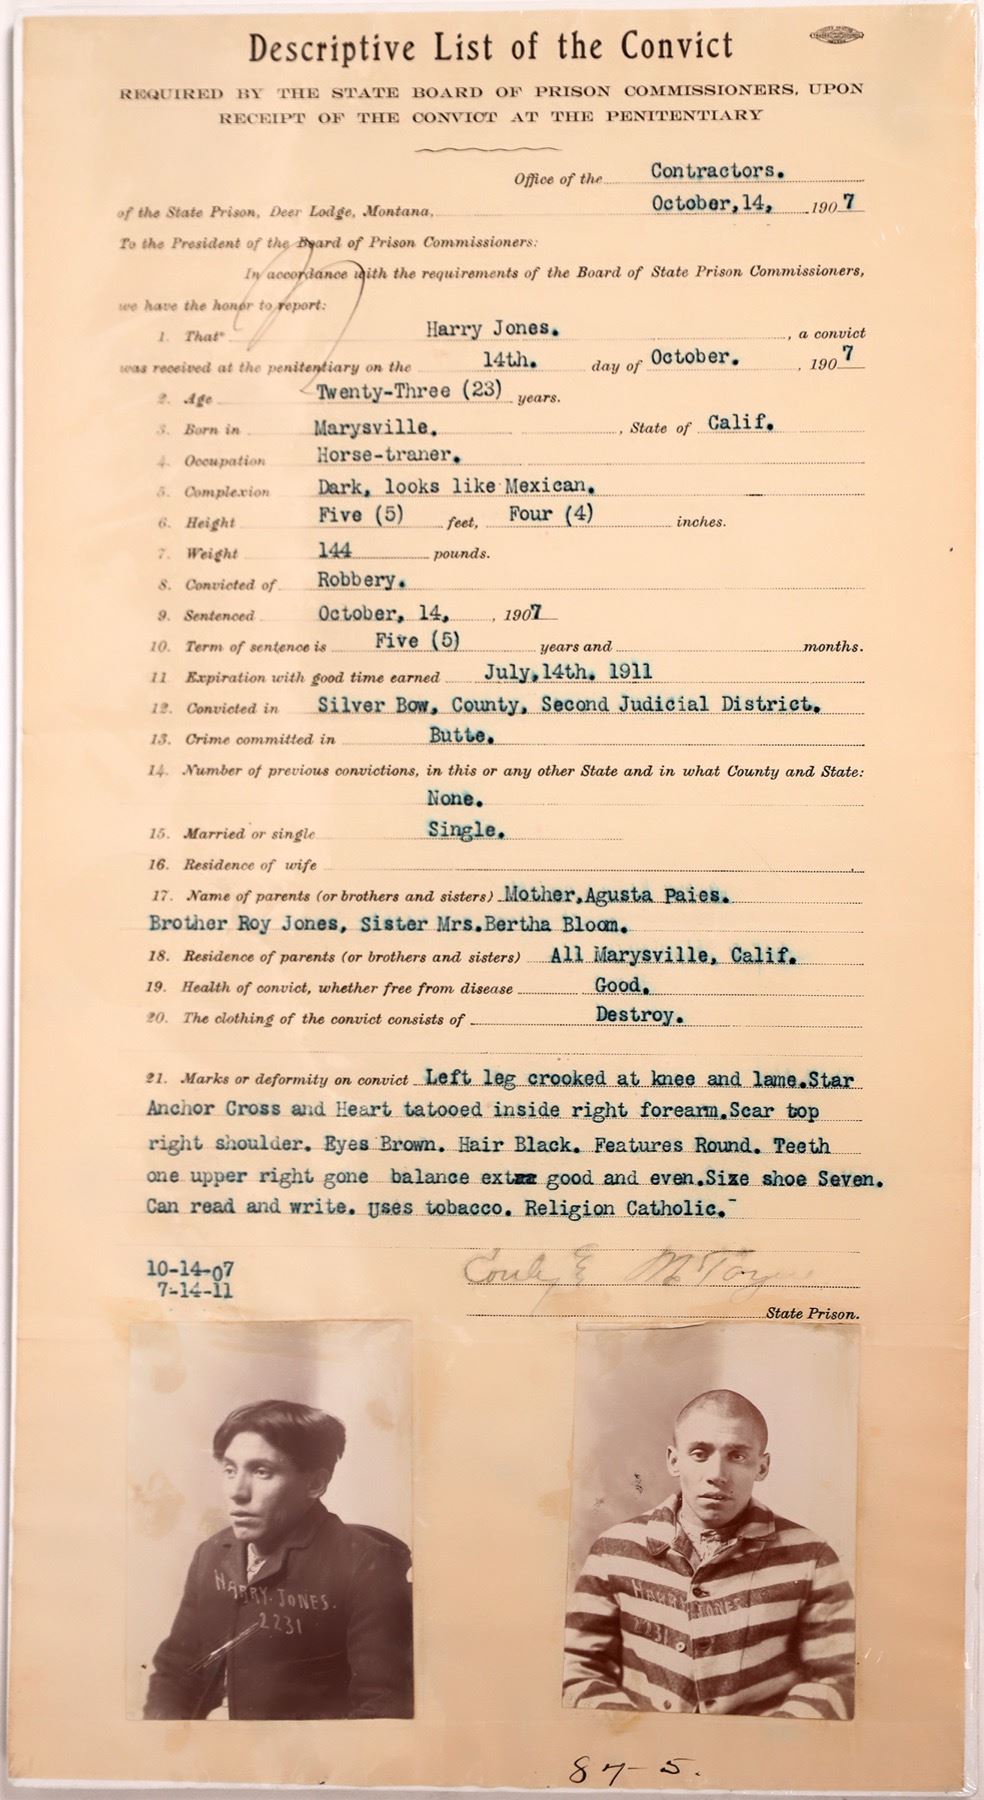 Descriptive List of the Convict
REQUIRED BY THE STATE BOARD OF PRISON COMMISSIONERS, UPON
RECEIPT OF THE CONVICT AT THE PENITENTIARY
Office of the Contractors.
of the State Prison, Deer Lodge, Montana, October, 14, 1907
To the President of the Board of Prison Commissioners:
In accordance with the requirements of the Board of State Prison Commissioners,
we have the honor to report:
1. That Harry Jones. , a convict
was received at the penitentiary on the 14th. day of October. , 1907
2. Age Twenty-Three (23) years.
3. Born in Marysville. , State of Calif.
4. Occupation Horse-traner.
5. Complexion Dark, looks like Mexican.
6. Height Five (5) feet, Four (4) inches.
7. Weight 144 pounds.
8. Convicted of Robbery.
9. Sentenced October, 14, , 1907
10. Term of sentence is Five (5) years and months.
11 Expiration with good time earned July,14th. 1911
12. Convicted in Silver Bow, County, Second Judicial District.
13. Crime committed in Butte.
14. Number of previous convictions, in this or any other State and in what County and State:
None.
15. Married or single Single.
16. Residence of wife
17. Name of parents (or brothers and sisters) Mother,Agusta Paies.
Brother Roy Jones, Sister Mrs.Bertha Bloom.
18. Residence of parents (or brothers and sisters) All Marysville, Calif.
19. Health of convict, whether free from disease Good.
20. The clothing of the convict consists of Destroy.
21. Marks or deformity on convict Left leg crooked at knee and lame.Star
Anchor Cross and Heart tatooed inside right forearm.Scar top
right shoulder. Eyes Brown. Hair Black. Features Round. Teeth
one upper right gone balance good and even.Size shoe Seven.
Can read and write. Uses tobacco. Religion Catholic.-
10-14-07
7-14-11
State Prison.
HARRY. JONES.
2231
HARRY JONES
2231
87-5.